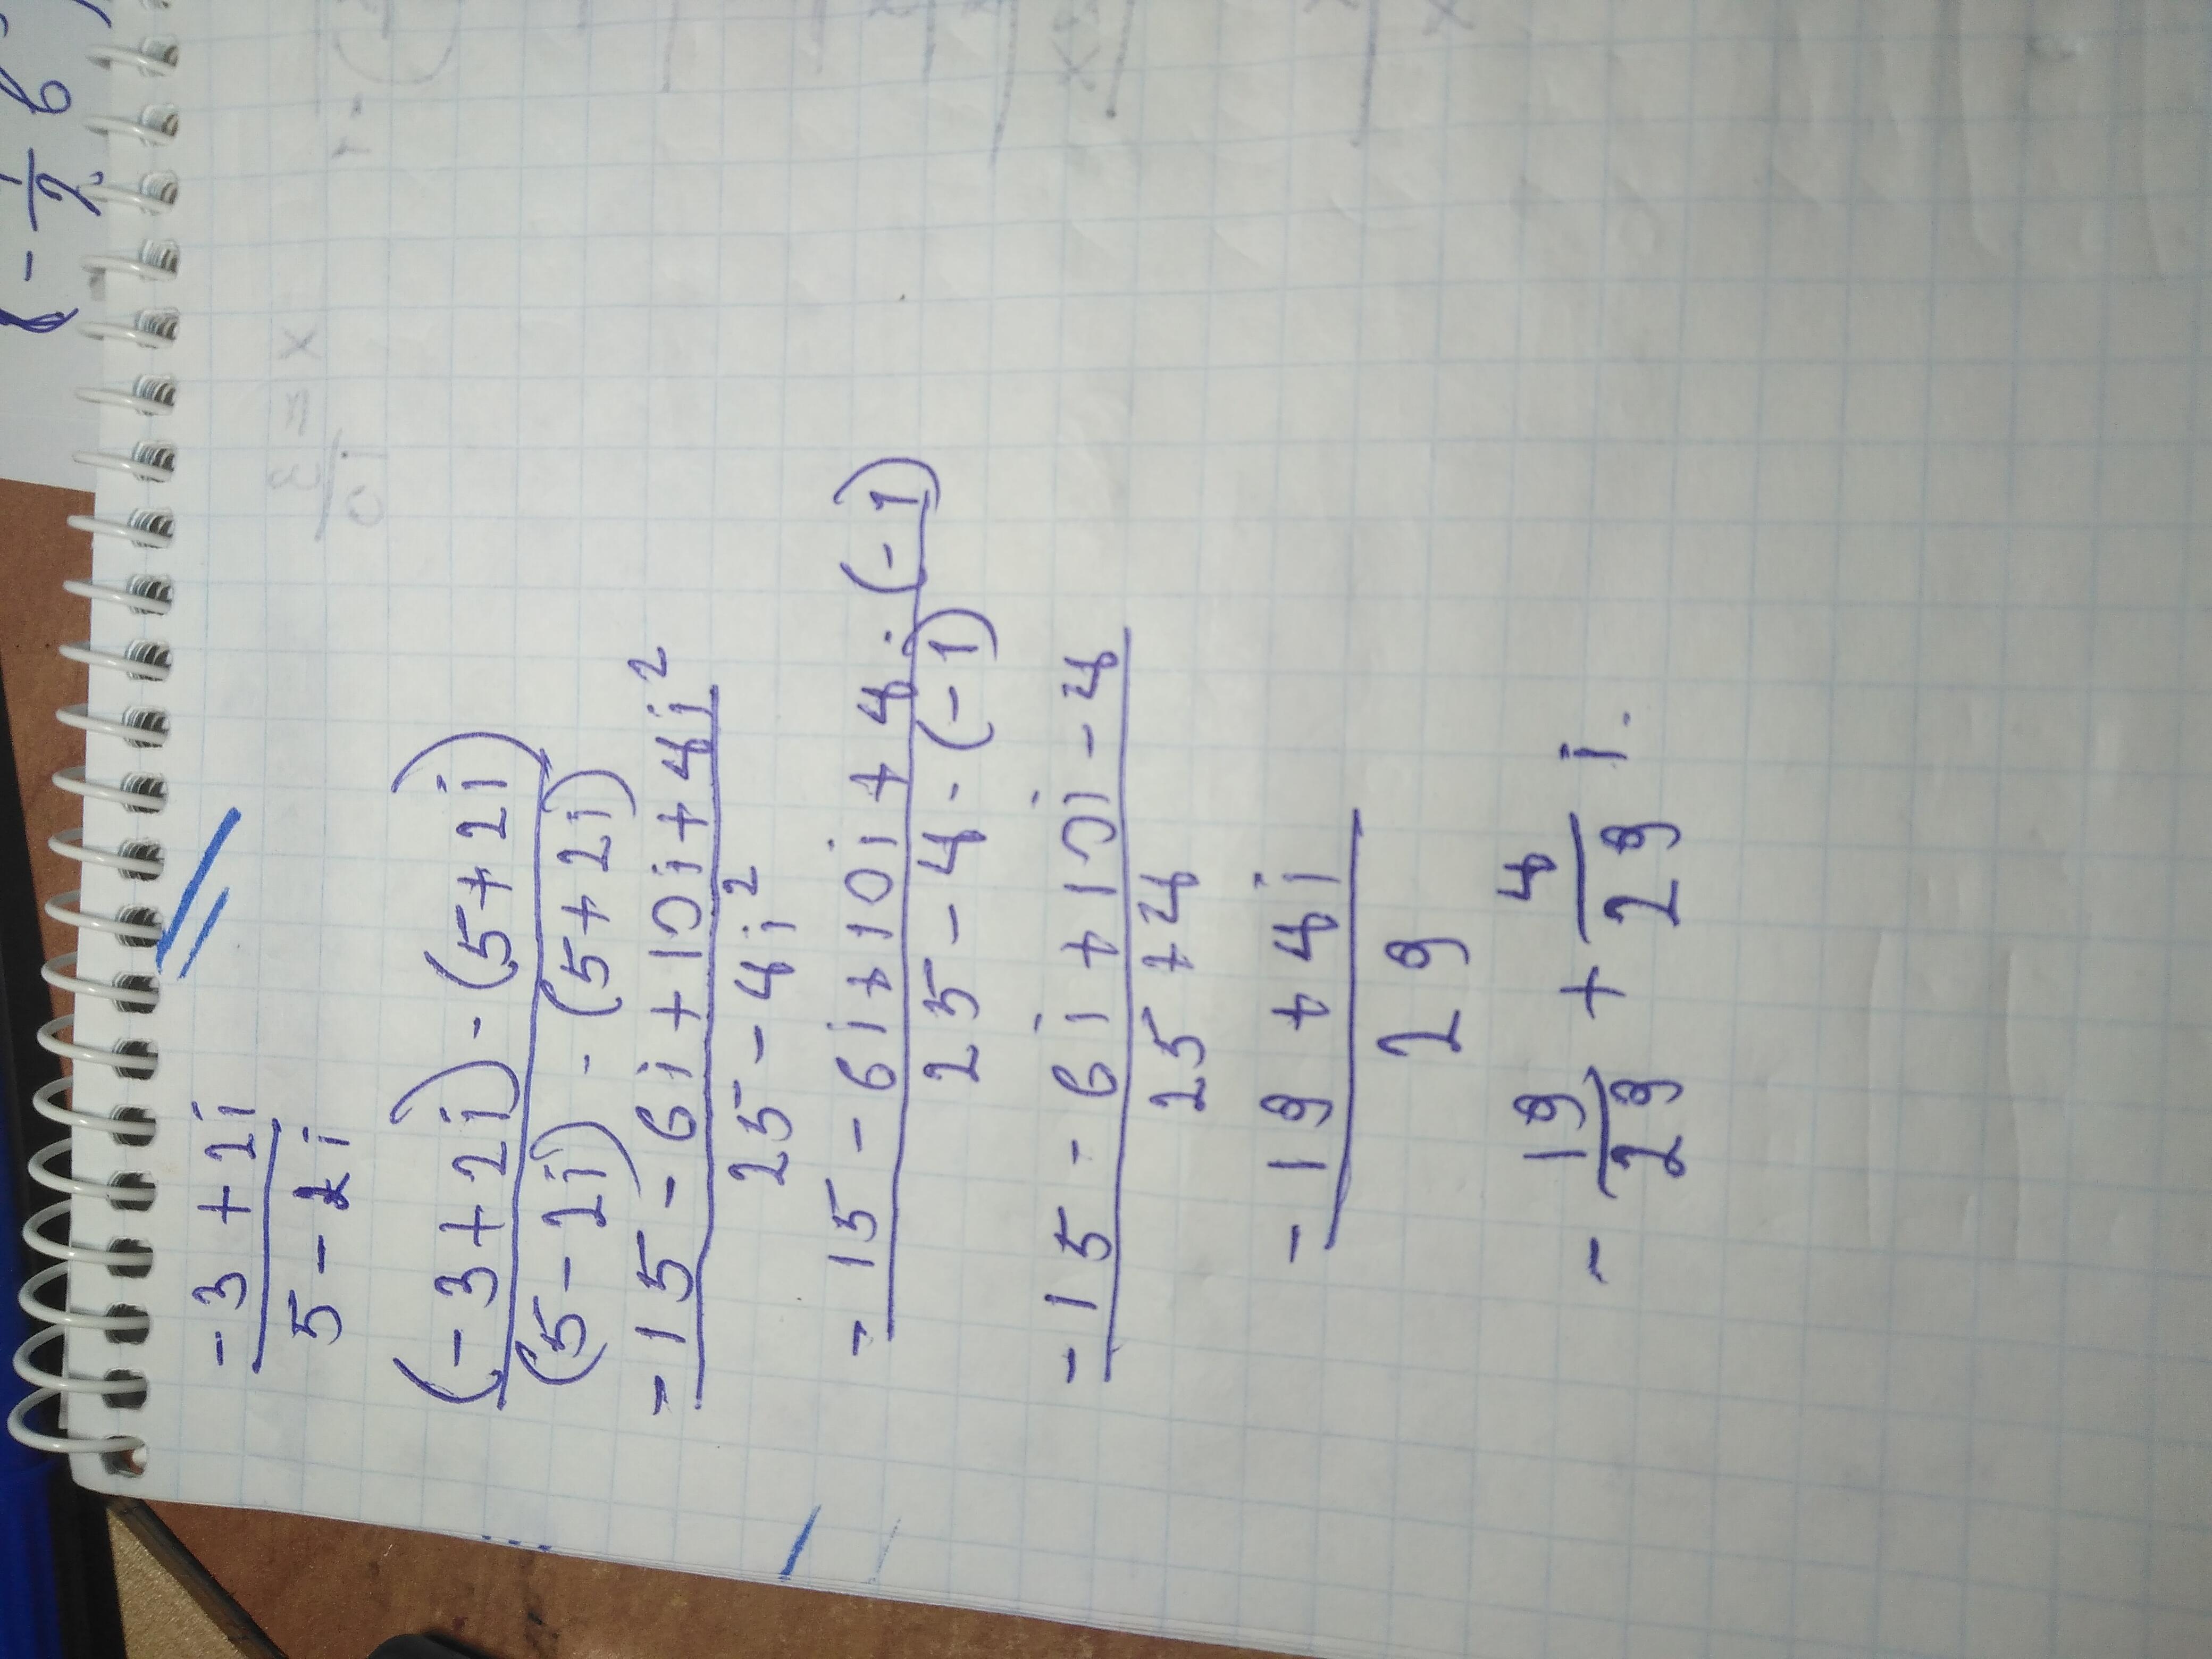 (- 1/2 6
-3 + 2i
5 - 2i
(-3 + 2i) · (5 + 2i)
(5 - 2i) · (5 + 2i)
-15 - 6i + 10i + 4i²
25 - 4i²
-15 - 6i + 10i + 4 · (-1)
25 - 4 · (-1)
-15 - 6i + 10i - 4
25 + 4
-19 + 4i
29
- 19/29 + 4/29 i.